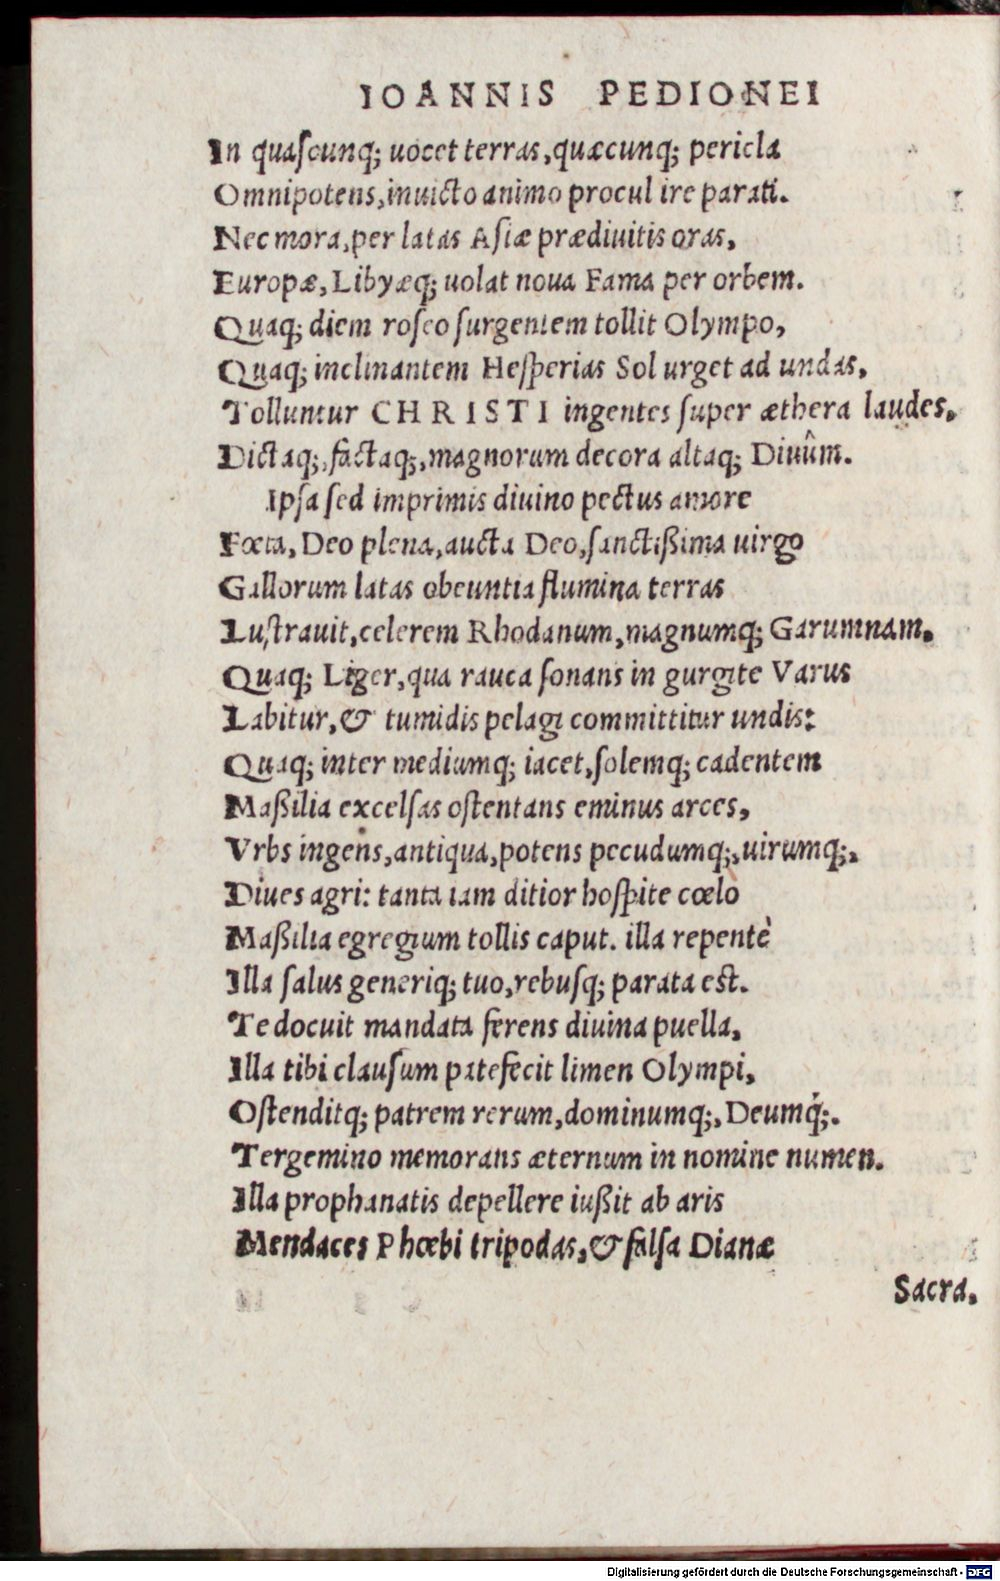 IOANNIS PEDIONEI
In quaſcunq; uocet terras, quæcunq; pericla
Omnipotens, inuicto animo procul ire parati.
Nec mora, per latas Aſiæ prædiuitis oras,
Europæ, Libyæq; uolat noua Fama per orbem.
Quaq; diem roſeo ſurgentem tollit Olympo,
Quaq; inclinantem Heſperias Sol urget ad undas,
Tolluntur CHRISTI ingentes ſuper æthera laudes,
Dictaq;, factaq;, magnorum decora altaq; Diuûm.
Ipſa ſed imprimis diuino pectus amore
Fœta, Deo plena, aucta Deo, ſanctißima uirgo
Gallorum latas obeuntia flumina terras
Luſtrauit, celerem Rhodanum, magnumq; Garumnam,
Quaq; Liger, qua rauca ſonans in gurgite Varus
Labitur, & tumidis pelagi committitur undis:
Quaq; inter mediumq; iacet, ſolemq; cadentem
Maßilia excelſas oſtentans eminus arces,
Vrbs ingens, antiqua, potens pecudumq;, uirumq;,
Diues agri: tanta iam ditior hoſpite cœlo
Maßilia egregium tollis caput. illa repentè
Illa ſalus generiq; tuo, rebuſq; parata eſt.
Te docuit mandata ferens diuina puella,
Illa tibi clauſum patefecit limen Olympi,
Oſtenditq; patrem rerum, dominumq;, Deumq́;.
Tergemino memorans æternum in nomine numen.
Illa prophanatis depellere iußit ab aris
Mendaces Phœbi tripodas, & falſa Dianæ
Sacra,
Digitalisierung gefördert durch die Deutsche Forschungsgemeinschaft - DFG